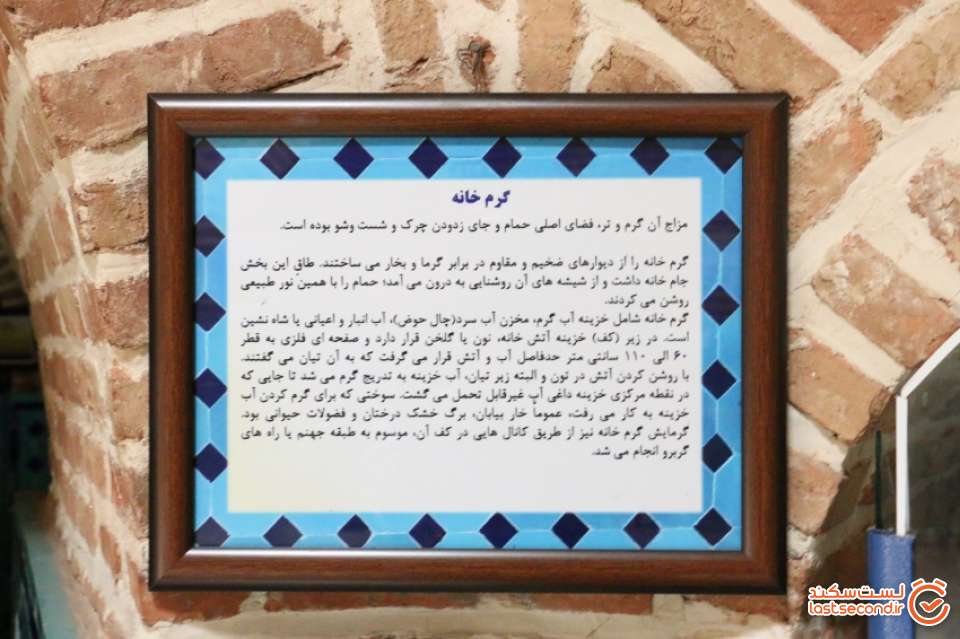 گرم خانه
مزاج آن گرم و تر، فضای اصلی حمام و جای زدودن چرک و شست وشو بوده است.
گرم خانه را از دیوارهای ضخیم و مقاوم در برابر گرما و بخار می ساختند. طاق این بخش
جام خانه داشت و از شیشه های آن روشنایی به درون می آمد؛ حمام را با همین نور طبیعی
روشن می کردند.
گرم خانه شامل خزینه آب گرم، مخزن آب سرد(چال حوض)، آب انبار و اعیانی یا شاه نشین
است. در زیر (کف) خزینه آتش خانه، نون یا گلخن قرار دارد و صفحه ای فلزی به قطر
۶۰ الی ۱۱۰ سانتی متر حدفاصل آب و آتش قرار می گرفت که به آن تیان می گفتند.
با روشن کردن آتش در تون و البته زیر تیان، آب خزینه به تدریج گرم می شد تا جایی که
در نقطه مرکزی خزینه داغی آب غیرقابل تحمل می گشت. سوختی که برای گرم کردن آب
خزینه به کار می رفت، عموماً خار بیابان، برگ خشک درختان و فضولات حیوانی بود.
گرمایش گرم خانه نیز از طریق کانال هایی در کف آن، موسوم به طبقه جهنم یا راه های
گربرو انجام می شد.
لست‌سکند
lastsecond.ir